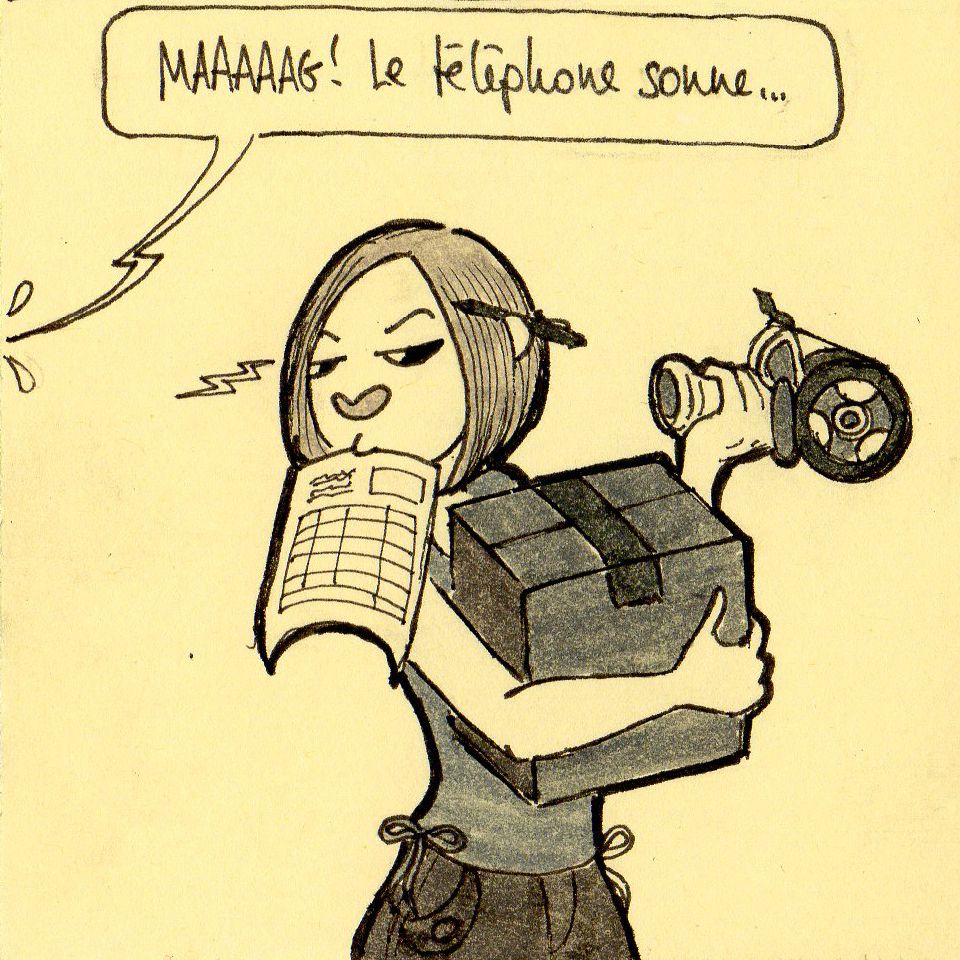 MAAAAAG! Le téléphone sonne...